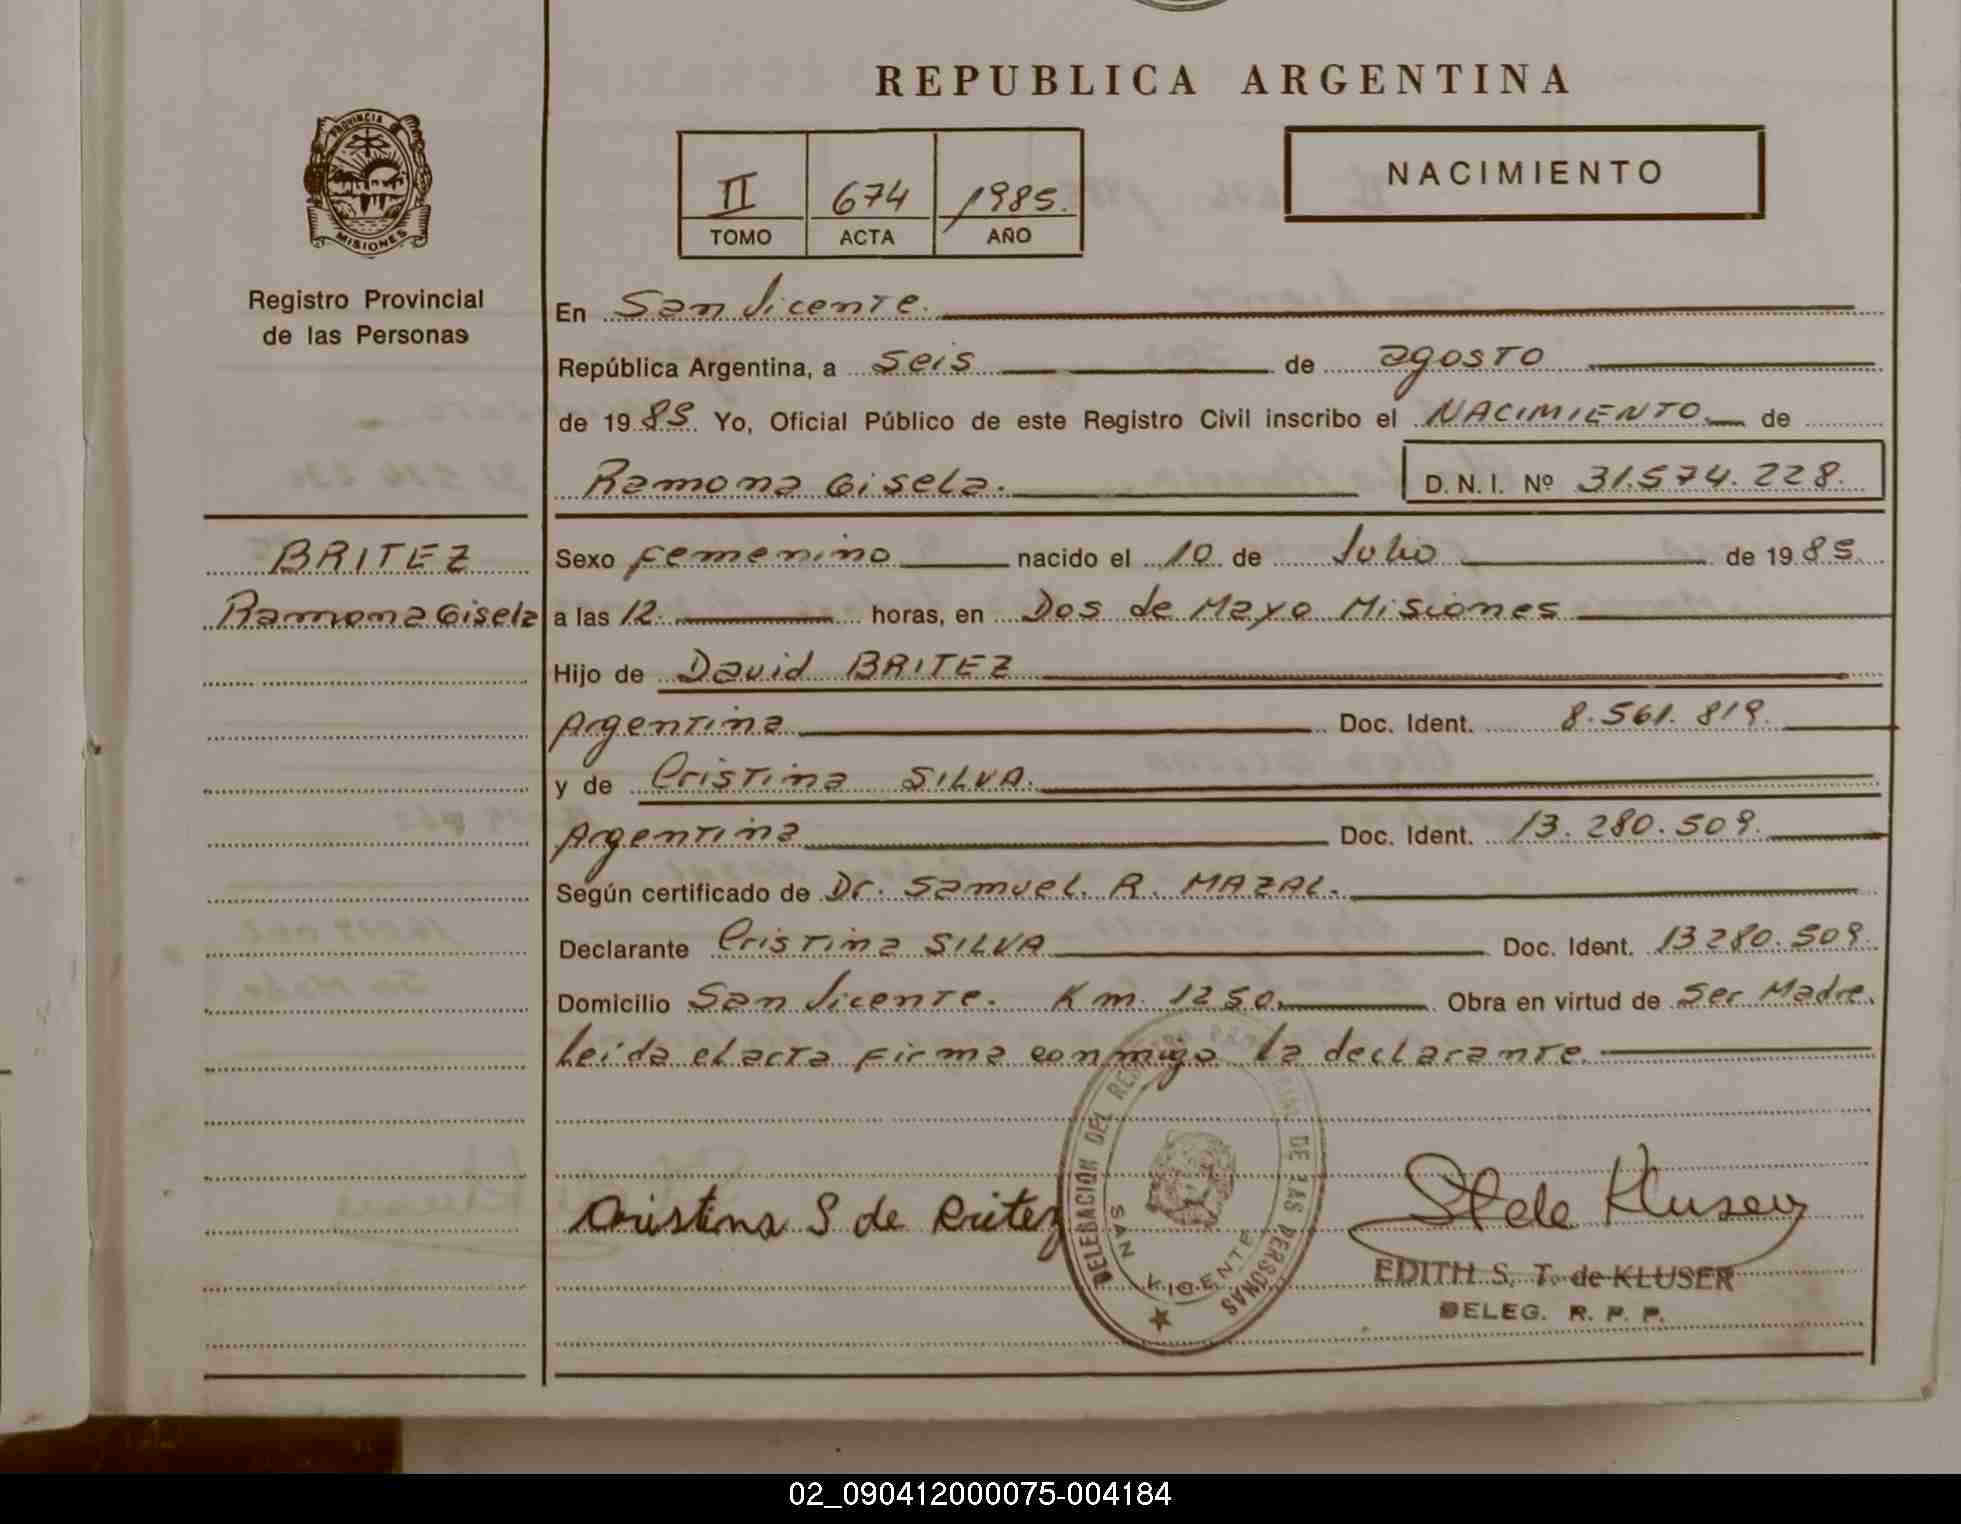 REPUBLICA ARGENTINA
PROVINCIA
MISIONES
Registro Provincial
de las Personas
II 674 1985.
TOMO ACTA AÑO
NACIMIENTO
En San Vicente.
República Argentina, a seis de agosto
de 1985 Yo, Oficial Público de este Registro Civil inscribo el NACIMIENTO de
Ramona Gisela. D. N. I. Nº 31.574.228.
BRITEZ
Ramona Gisela
Sexo femenino nacido el 10 de Julio de 1985.
a las 12. horas, en Dos de Mayo Misiones
Hijo de David BRITEZ
Argentina Doc. Ident. 8.561.819.
y de Cristina SILVA.
Argentina Doc. Ident. 13.280.509.
Según certificado de Dr. Samuel. R. MAZAL.
Declarante Cristina SILVA Doc. Ident. 13280.509.
Domicilio San Vicente. Km. 1250. Obra en virtud de Ser Madre.
Leída el acta firma conmigo la declarante.
Cristina S de Britez
DELEGACIÓN DEL DE LAS PERSONAS
SAN VICENTE
de Kluser
EDITH S. T. de KLUSER
DELEG. R. P. P.
02_090412000075-004184